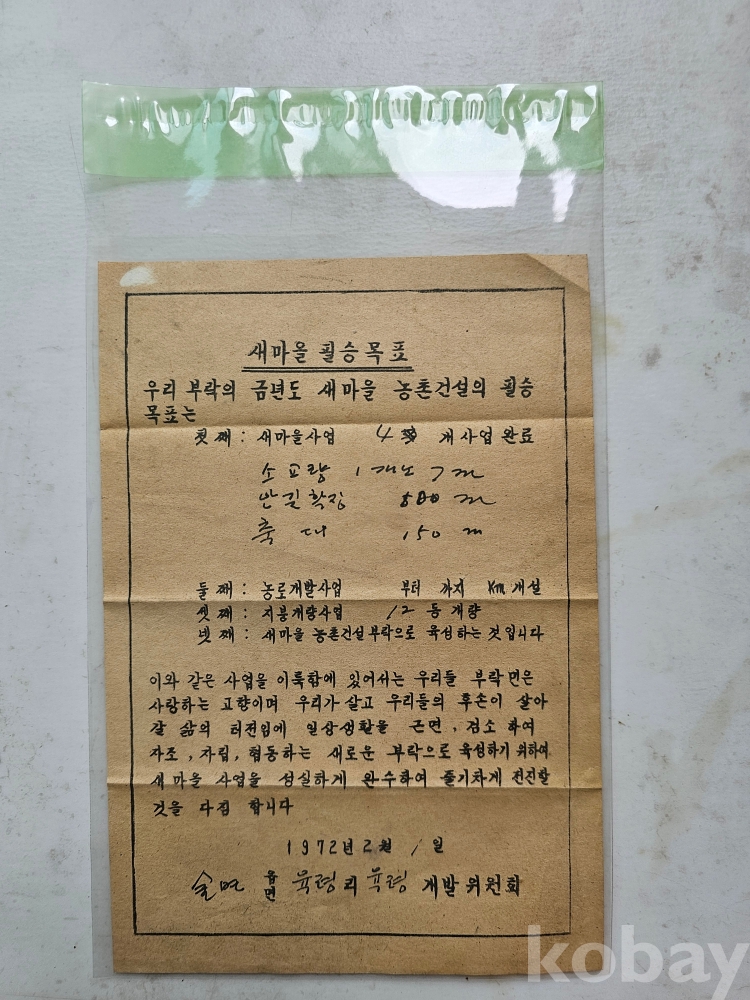 새마을 필승목표
우리 부락의 금년도 새마을 농촌건설의 필승
목표는
첫째 : 새마을사업 4 개사업완료
소교량 1개소 7m
안길확장 500m
축대 150m
둘째 : 농로개발사업 부터 까지 Km개설
셋째 : 지붕개량사업 12동개량
넷째 : 새마을 농촌건설부락으로 육성하는 것입니다
이와 같은 사업을 이룩함에 있어서는 우리들 부락면은
사랑하는 고향이며 우리가 살고 우리들의 후손이 살아
갈 삶의 터전임에 일상생활을 근면 , 검소 하여
자조 , 자립 , 협동하는 새로운 부락으로 육성하기 위하여
새마을 사업을 성실하게 완수하여 줄기차게 전진할
것을 다짐 합니다
1972년 2월 1일
읍면 육령리 육령 개발위원회
kobay